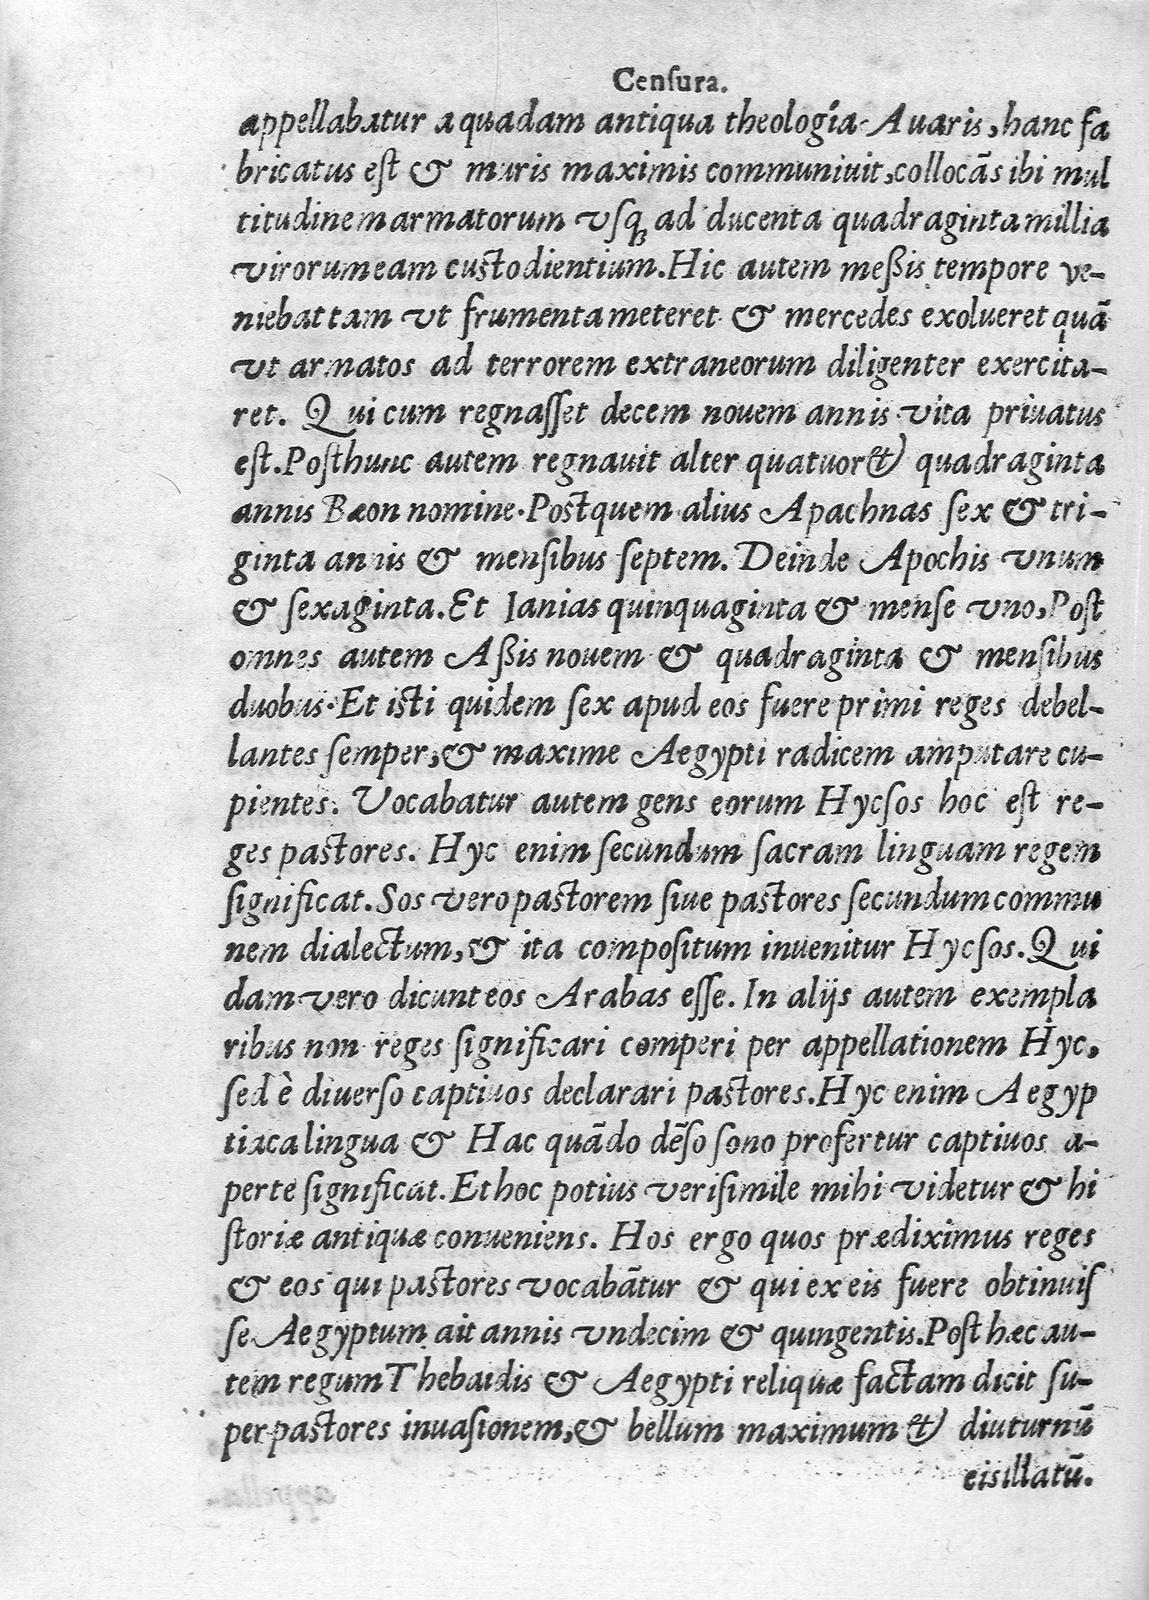 Cenſura.
appellabatur a quadam antiqua theologia Auaris, hanc fa
bricatus eſt & muris maximis communiuit, collocãs ibi mul
titudinem armatorum vſqꝫ ad ducenta quadraginta millia
virorum eam cuſtodientium. Hic autem meßis tempore ve-
niebat tam vt frumenta meteret & mercedes exolueret quã
vt armatos ad terrorem extraneorum diligenter exercita-
ret. Qui cum regnaſſet decem nouem annis vita priuatus
eſt. Poſt hunc autem regnauit alter quatuor & quadraginta
annis Bæon nomine. Poſt quem alius Apachnas ſex & tri-
ginta annis & menſibus ſeptem. Deinde Apochis vnum
& ſexaginta. Et Ianias quinquaginta & menſe vno, Poſt
omnes autem Aßis nouem & quadraginta & menſibus
duobus. Et iſti quidem ſex apud eos fuere primi reges debel-
lantes ſemper, & maxime Aegypti radicem amputare cu-
pientes. Vocabatur autem gens eorum Hycſos hoc eſt re-
ges paſtores. Hyc enim ſecundum ſacram linguam regem
ſignificat. Sos vero paſtorem ſiue paſtores ſecundum commu
nem dialectum, & ita compoſitum inuenitur Hycſos. Qui
dam vero dicunt eos Arabas eſſe. In alijs autem exempla
ribus non reges ſignificari comperi per appellationem Hyc,
ſed è diuerſo captiuos declarari paſtores. Hyc enim Aegyp
tiaca lingua & Hac quãdo dẽſo ſono profertur captiuos a-
perte ſignificat. Et hoc potius veriſimile mihi videtur & hi
ſtoriæ antiquæ conueniens. Hos ergo quos prædiximus reges
& eos qui paſtores vocabãtur & qui ex eis fuere obtinuiſ
ſe Aegyptum ait annis vndecim & quingentis. Poſt hæc au-
tem regum Thebaidis & Aegypti reliquæ factam dicit ſu-
per paſtores inuaſionem, & bellum maximum & diuturnũ
eis illatũ.